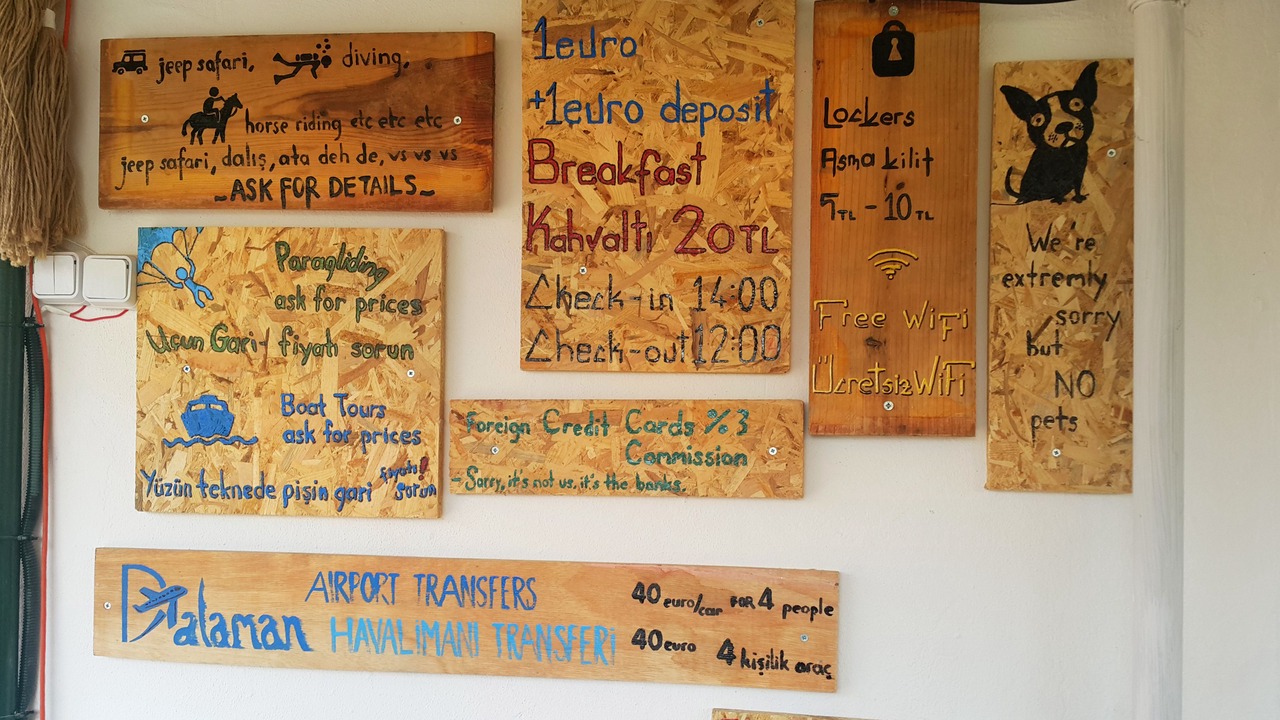 jeep safari, diving,
horse riding etc etc etc
jeep safari, dalış, ata deh de, vs vs vs
-ASK FOR DETAILS-
Paragliding
ask for prices
Uçun Gari-! fiyatı sorun
Boat Tours
ask for prices
Yüzün teknede pişin gari fiyatı! sorun
1euro
+1euro deposit
Breakfast
Kahvaltı 20TL
Check-in 14:00
Check-out 12:00
Foreign Credit Cards %3
Commission
- Sorry, it's not us, it's the banks.
Lockers
Asma kilit
5TL - 10TL
Free WiFi
Ücretsiz WiFi
We're
extremly
sorry
but
NO
pets
Dalaman
AIRPORT TRANSFERS
40 euro/car FOR 4 people
HAVALIMANI TRANSFERİ
40 euro 4 kişilik araç